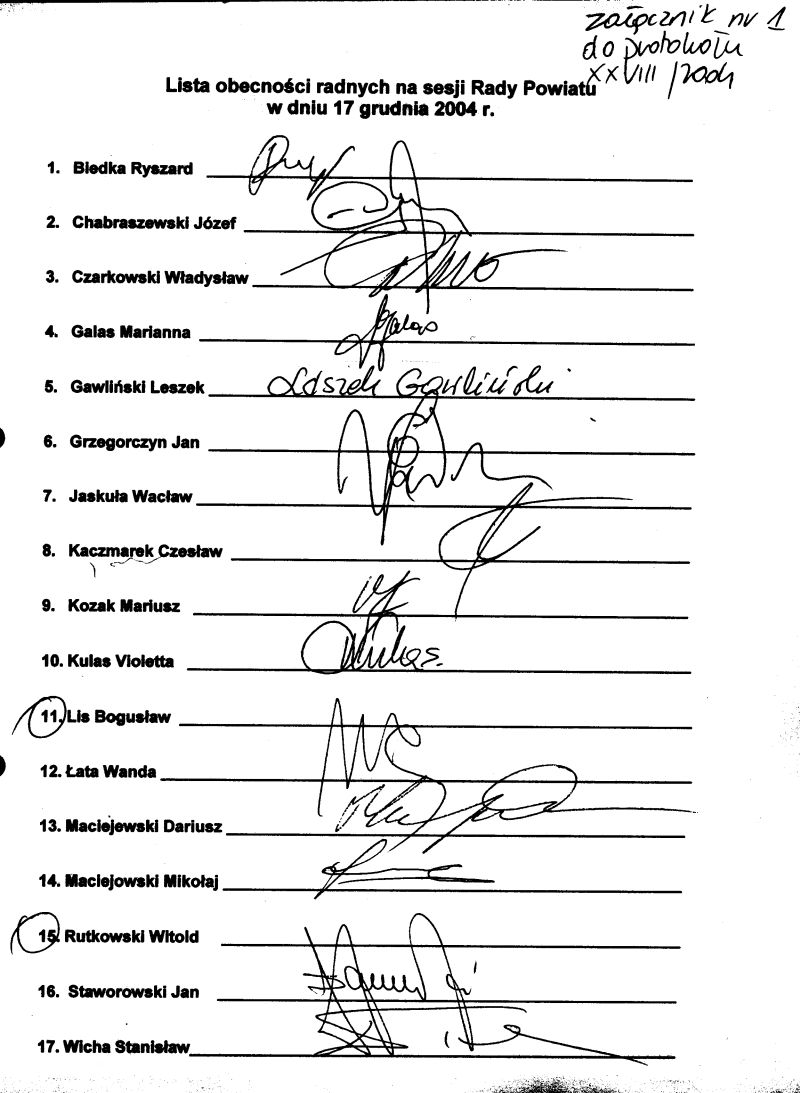 załącznik nr 1
do protokołu
XXVIII/2004
Lista obecności radnych na sesji Rady Powiatu
w dniu 17 grudnia 2004 r.
1. Biedka Ryszard
2. Chabraszewski Józef
3. Czarkowski Władysław
4. Galas Marianna Galas
5. Gawliński Leszek Leszek Gawliński
6. Grzegorczyn Jan
7. Jaskuła Wacław
8. Kaczmarek Czesław
9. Kozak Mariusz
10. Kulas Violetta
11. Lis Bogusław
12. Łata Wanda
13. Maciejewski Dariusz
14. Maciejowski Mikołaj
15. Rutkowski Witold
16. Staworowski Jan
17. Wicha Stanisław